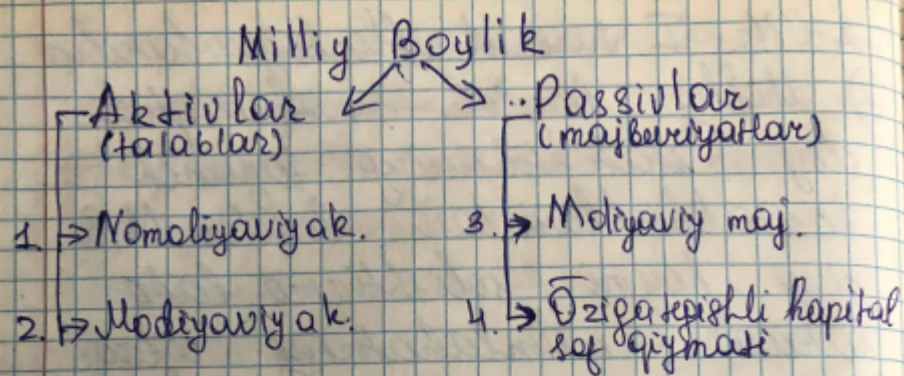 Milliy Boylik
Aktivlar
(talablar)
1. Nomoliyaviy ak.
2. Moliyaviy ak.
Passivlar
(majburiyatlar)
3. Moliyaviy maj.
4. Ōziga tegishli kapital
sof qiymati